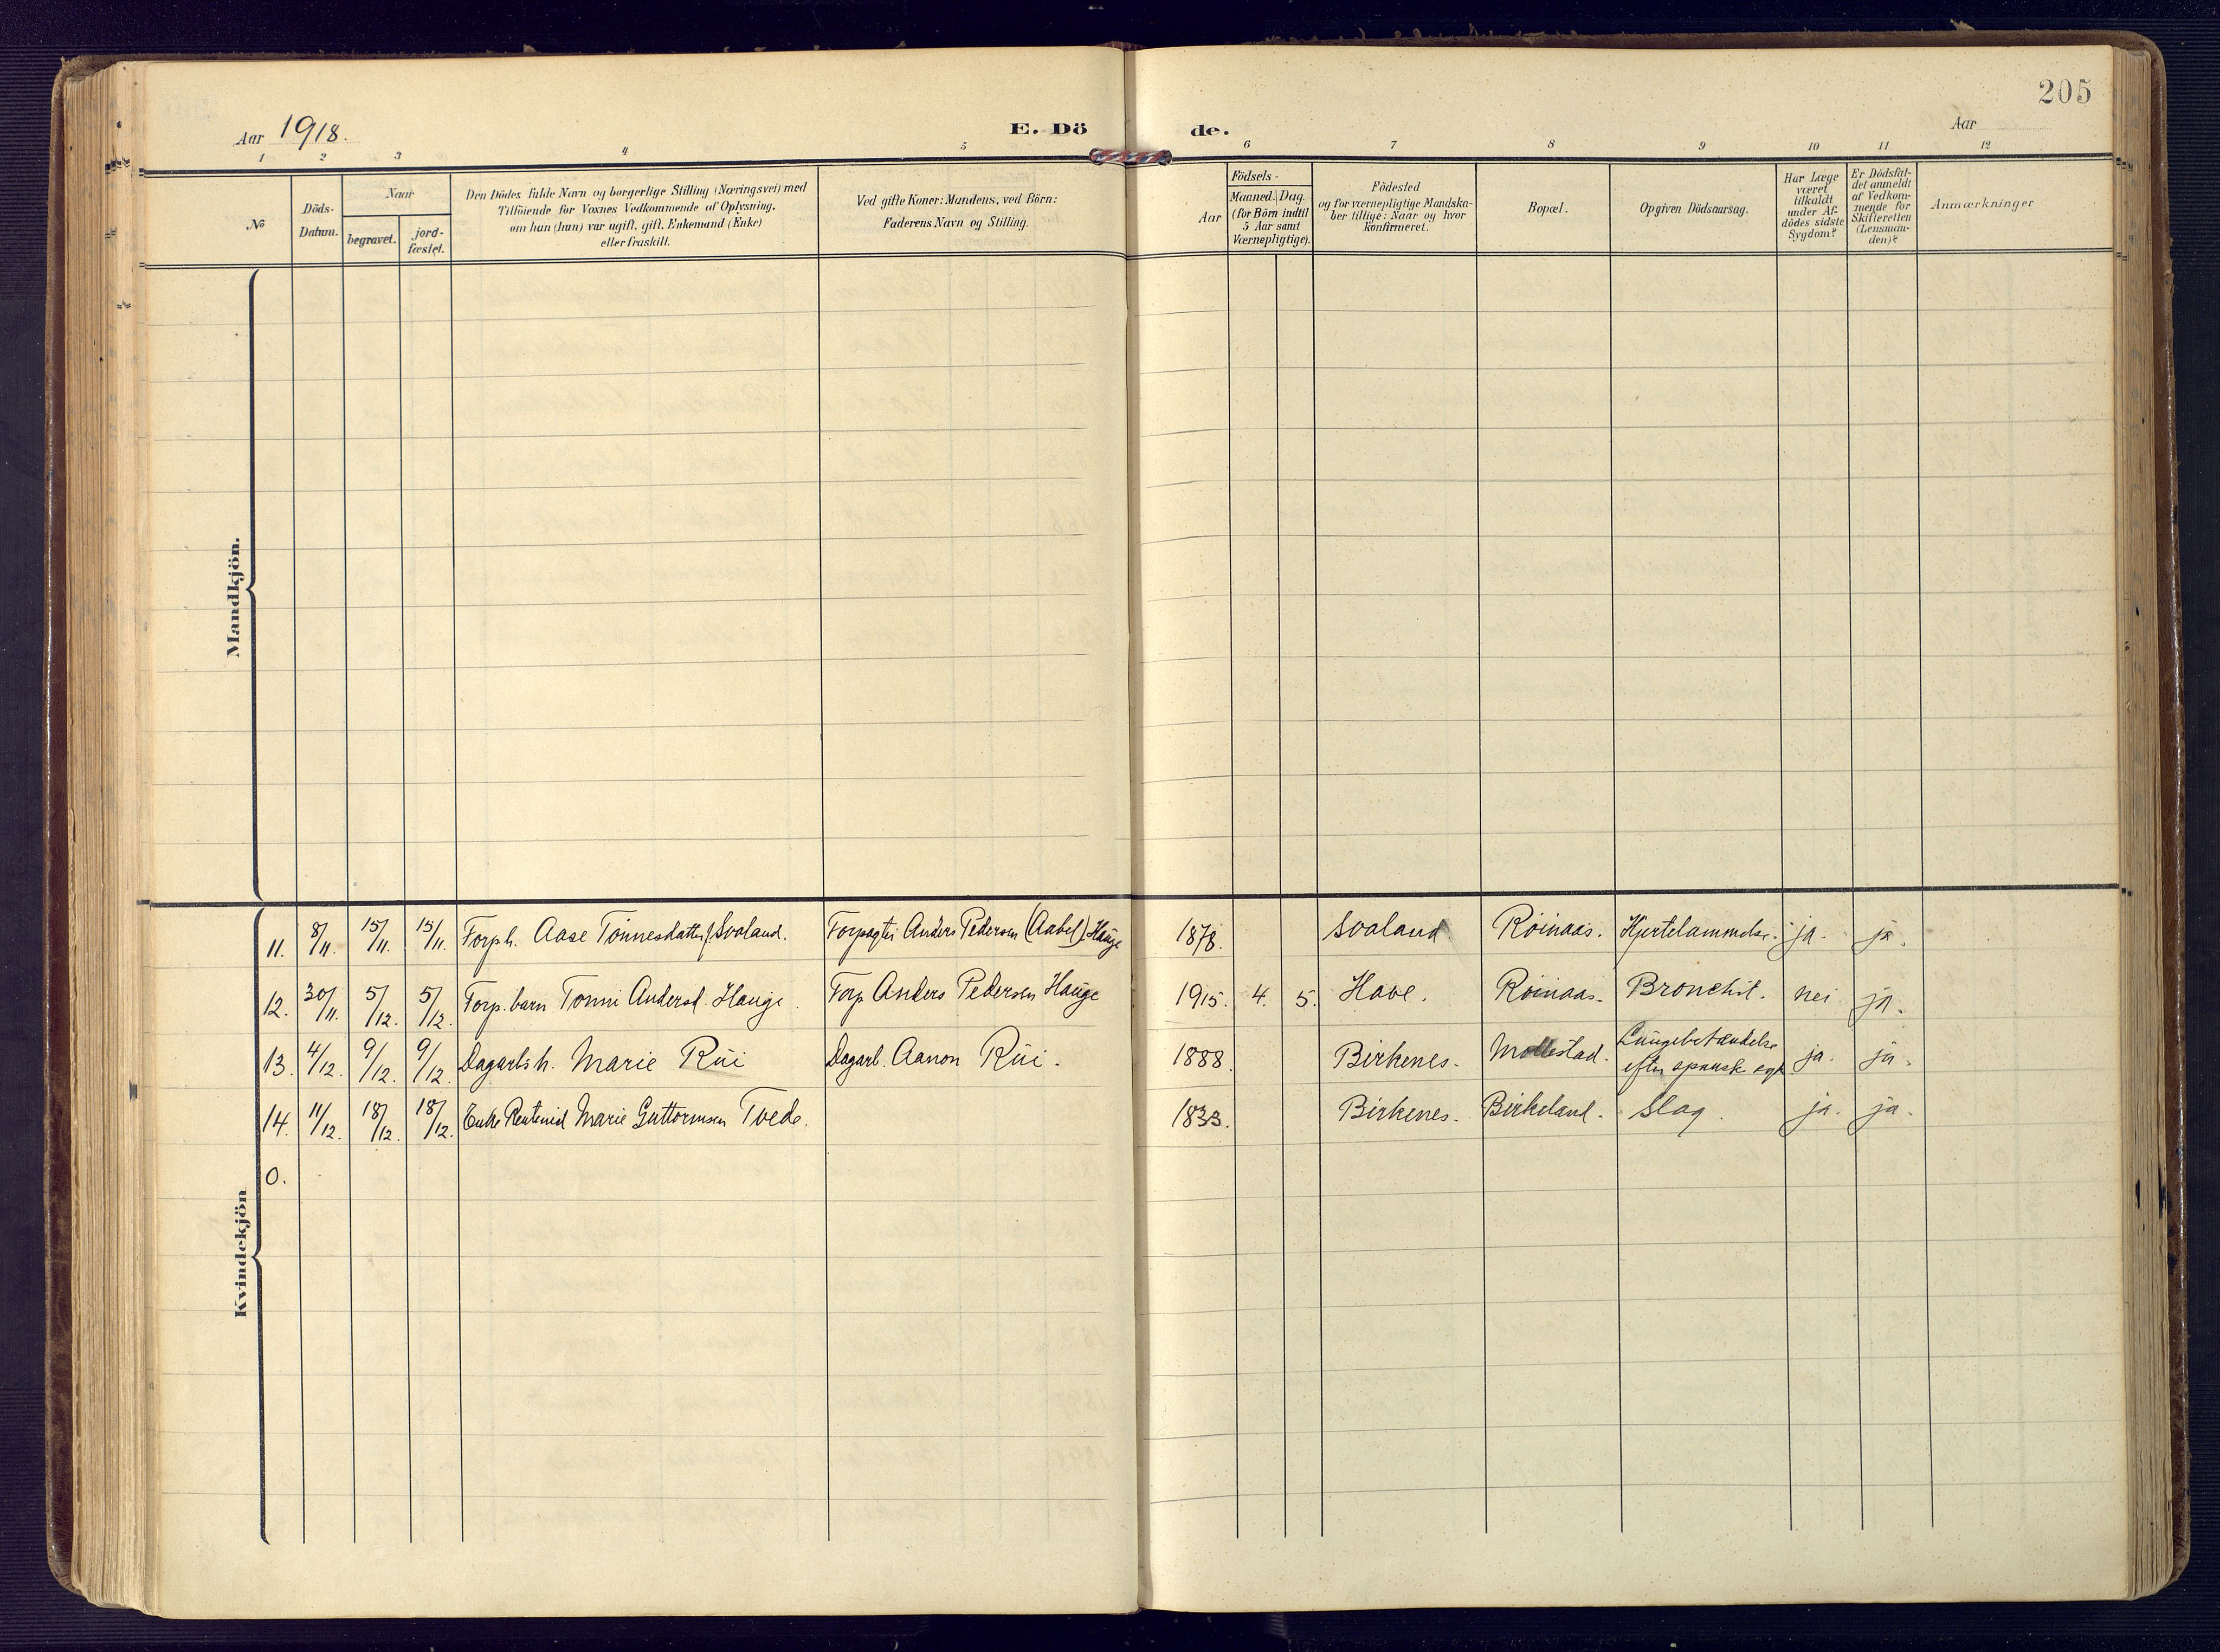 205
Aar 1918.
E. Dö de.
Aar
1 2 3 4 5 6 7 8 9 10 11 12
No
Döds-
Datum.
Naar
begravet.
jord-
fæstet.
Den Dödes fulde Navn og borgerlige Stilling (Næringsvei) med
Tilföiende for Voxnes Vedkommende af Oplysning,
om han (hun) var ugift, gift, Enkemand (Enke)
eller fraskilt.
Ved gifte Koner: Mandens, ved Börn:
Faderens Navn og Stilling.
Födsels-
Aar
Maaned. Dag.
(for Börn indtil
5 Aar samt
Værnepligtige).
Födested
og for værnepligtige Mandska-
ber tillige: Naar og hvor
konfirmeret.
Bopæl.
Opgiven Dödsaarsag.
Har Læge
været
tilkaldt
under Af-
dödes sidste
Sygdom?
Er Dödsfal-
det anmeldt
af Vedkom-
mende for
Skifteretten
(Lensman-
den)?
Anmærkninger
Mandkjön.
Kvindekjön
11. 8/11. 15/11. 15/11. Forp h. Aase Tønnesdatter Svaland. Forpagter Anders Pedersen (Aabel) Hauge 1878. Svaland. Röinaas. Hjertelammelse. ja. ja.
12. 30/11. 5/12. 5/12. Forp. barn Tomni Andersd. Hauge. Forp Anders Pedersen Hauge 1915. 4. 5. Have. Röinaas. Bronchit. nei ja.
13. 4/12. 9/12. 9/12. Dagarbs h. Marie Rui Dagarb. Aanon Rui. 1888. Birkenes. Mollestad. Lungebetændelse
efter spansk syk ja. ja.
14. 11/12. 18/12. 18/12. Enke Marie Guttormsen Tvede. 1833. Birkenes. Birkeland. Slag. ja. ja.
0.